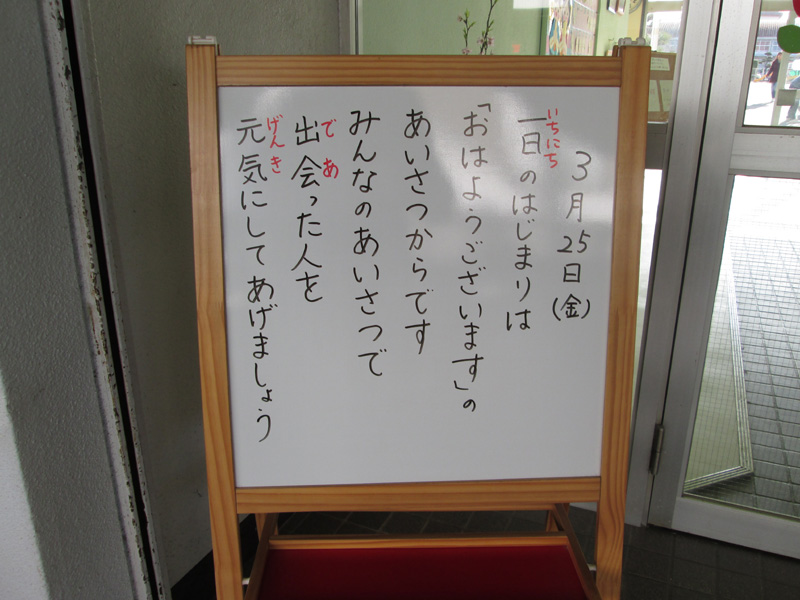 3月25日(金)
一日のはじまりは
いちにち
「おはようございます」の
あいさつからです
みんなのあいさつで
出会った人を
であ
元気にしてあげましょう
げんき